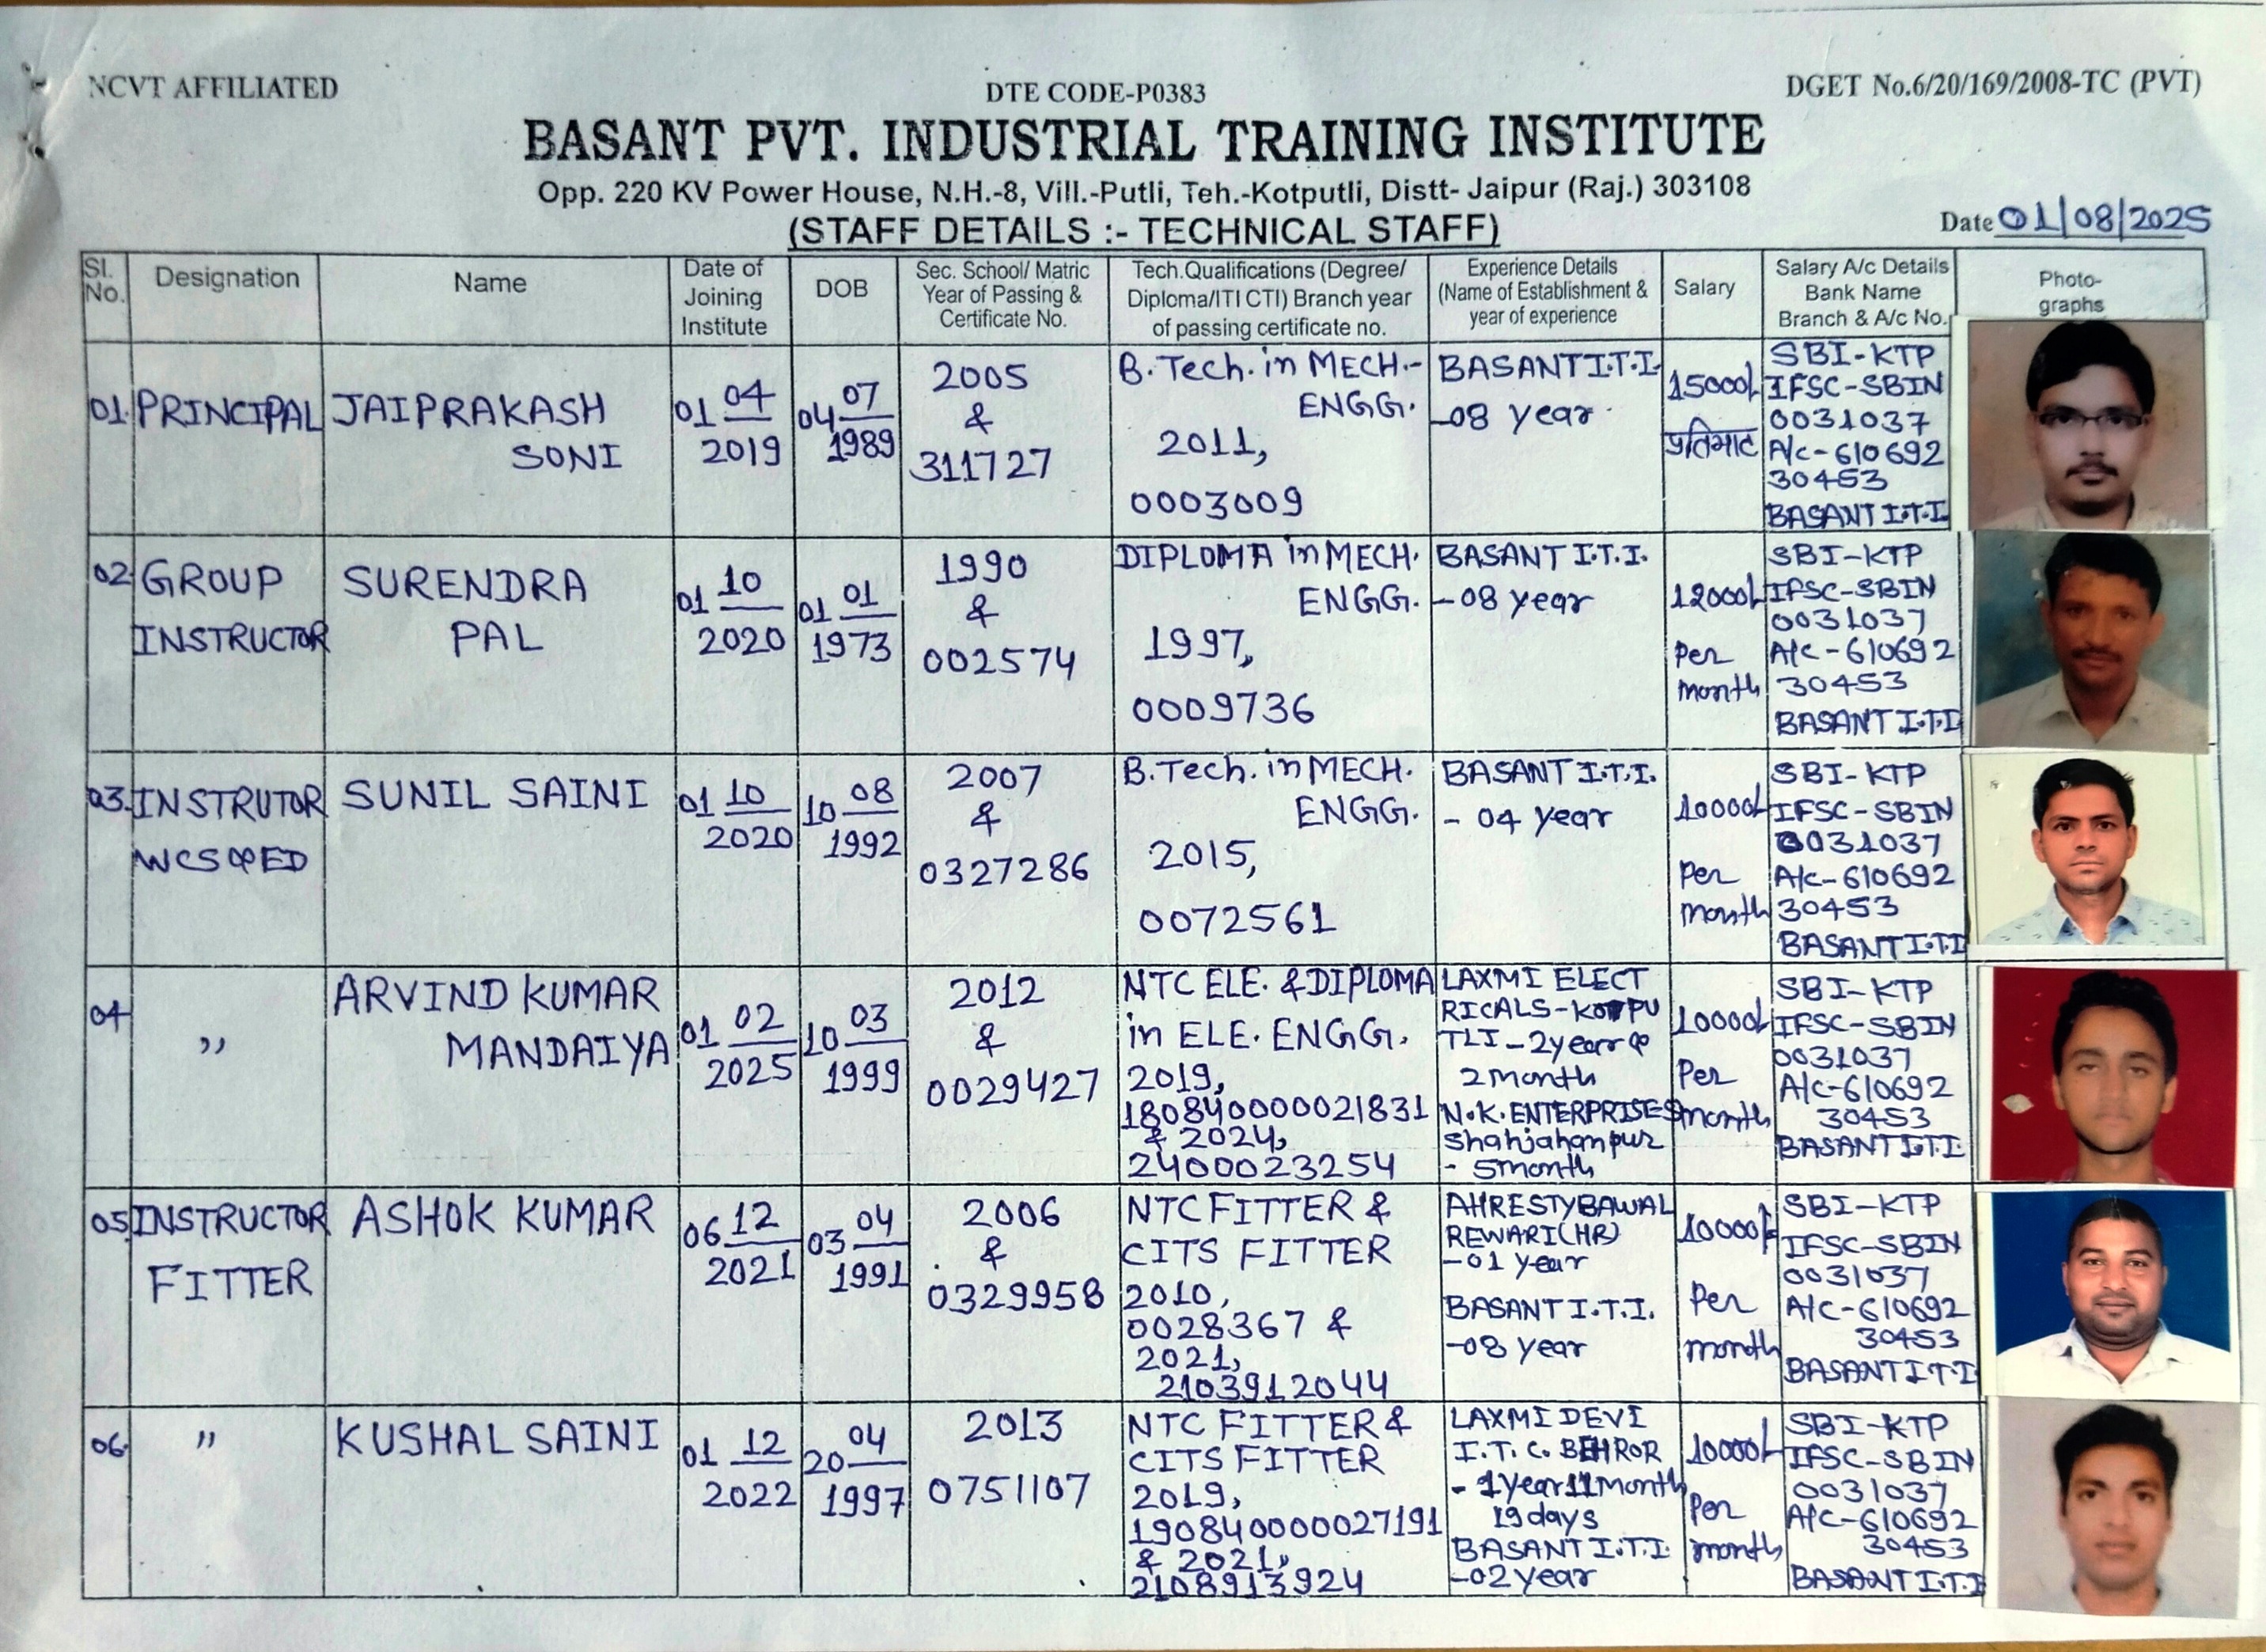 NCVT AFFILIATED
DTE CODE-P0383
DGET No.6/20/169/2008-TC (PVT)
BASANT PVT. INDUSTRIAL TRAINING INSTITUTE
Opp. 220 KV Power House, N.H.-8, Vill.-Putli, Teh.-Kotputli, Distt- Jaipur (Raj.) 303108
(STAFF DETAILS :- TECHNICAL STAFF)
Date 01/08/2025
Sl. No.
Designation
Name
Date of
Joining
Institute
DOB
Sec. School/ Matric
Year of Passing &
Certificate No.
Tech.Qualifications (Degree/
Diploma/ITI CTI) Branch year
of passing certificate no.
Experience Details
(Name of Establishment &
year of experience
Salary
Salary A/c Details
Bank Name
Branch & A/c No.
Photo-
graphs
01.
PRINCIPAL
JAIPRAKASH
SONI
01 04
2019
04 07
1989
2005
&
311727
B.Tech. in MECH.-
ENGG.
2011,
0003009
BASANT I.T.I
-08 year
15000/-
SBI-KTP
IFSC-SBIN
0031037
A/c-610692
30453
BASANT I.T.I
02
GROUP
INSTRUCTOR
SURENDRA
PAL
01 10
2020
01 01
1973
1990
&
002574
DIPLOMA in MECH.
ENGG.
1997,
0009736
BASANT I.T.I.
-08 year
12000/-
Per
month
SBI-KTP
IFSC-SBIN
0031037
A/c-610692
30453
BASANT I.T.I
03.
INSTRUTOR
WCS & ED
SUNIL SAINI
01 10
2020
10 08
1992
2007
&
0327286
B.Tech. in MECH.
ENGG.
2015,
0072561
BASANT I.T.I.
- 04 year
10000/-
Per
month
SBI-KTP
IFSC-SBIN
0031037
A/c-610692
30453
BASANT I.T.I
04
"
ARVIND KUMAR
MANDAIYA
01 02
2025
10 03
1999
2012
&
0029427
NTC ELE. & DIPLOMA
in ELE. ENGG.
2019,
180840000021831
& 2024,
2400023254
LAXMI ELECT
RICALS-KOTPU
TLI-2year &
2month
N.K.ENTERPRISES
Shahjahanpur
- 5month
10000/-
Per
month
SBI-KTP
IFSC-SBIN
0031037
A/c-610692
30453
BASANT I.T.I
05
INSTRUCTOR
FITTER
ASHOK KUMAR
06 12
2021
03 04
1991
2006
&
0329958
NTC FITTER &
CITS FITTER
2010,
0028367 &
2021,
2103912044
AHRESTY BAWAL
REWARI(HR)
-01 year
BASANT I.T.I.
-08 year
10000/-
Per
month
SBI-KTP
IFSC-SBIN
0031037
A/c-610692
30453
BASANT I.T.I
06
"
KUSHAL SAINI
01 12
2022
20 04
1997
2013
0751107
NTC FITTER &
CITS FITTER
2019,
190840000027191
& 2021,
2108913924
LAXMI DEVI
I.T.C. BEHROR
- 1year 11month
19days
BASANT I.T.I
-02 year
10000/-
Per
month
SBI-KTP
IFSC-SBIN
0031037
A/c-610692
30453
BASANT I.T.I